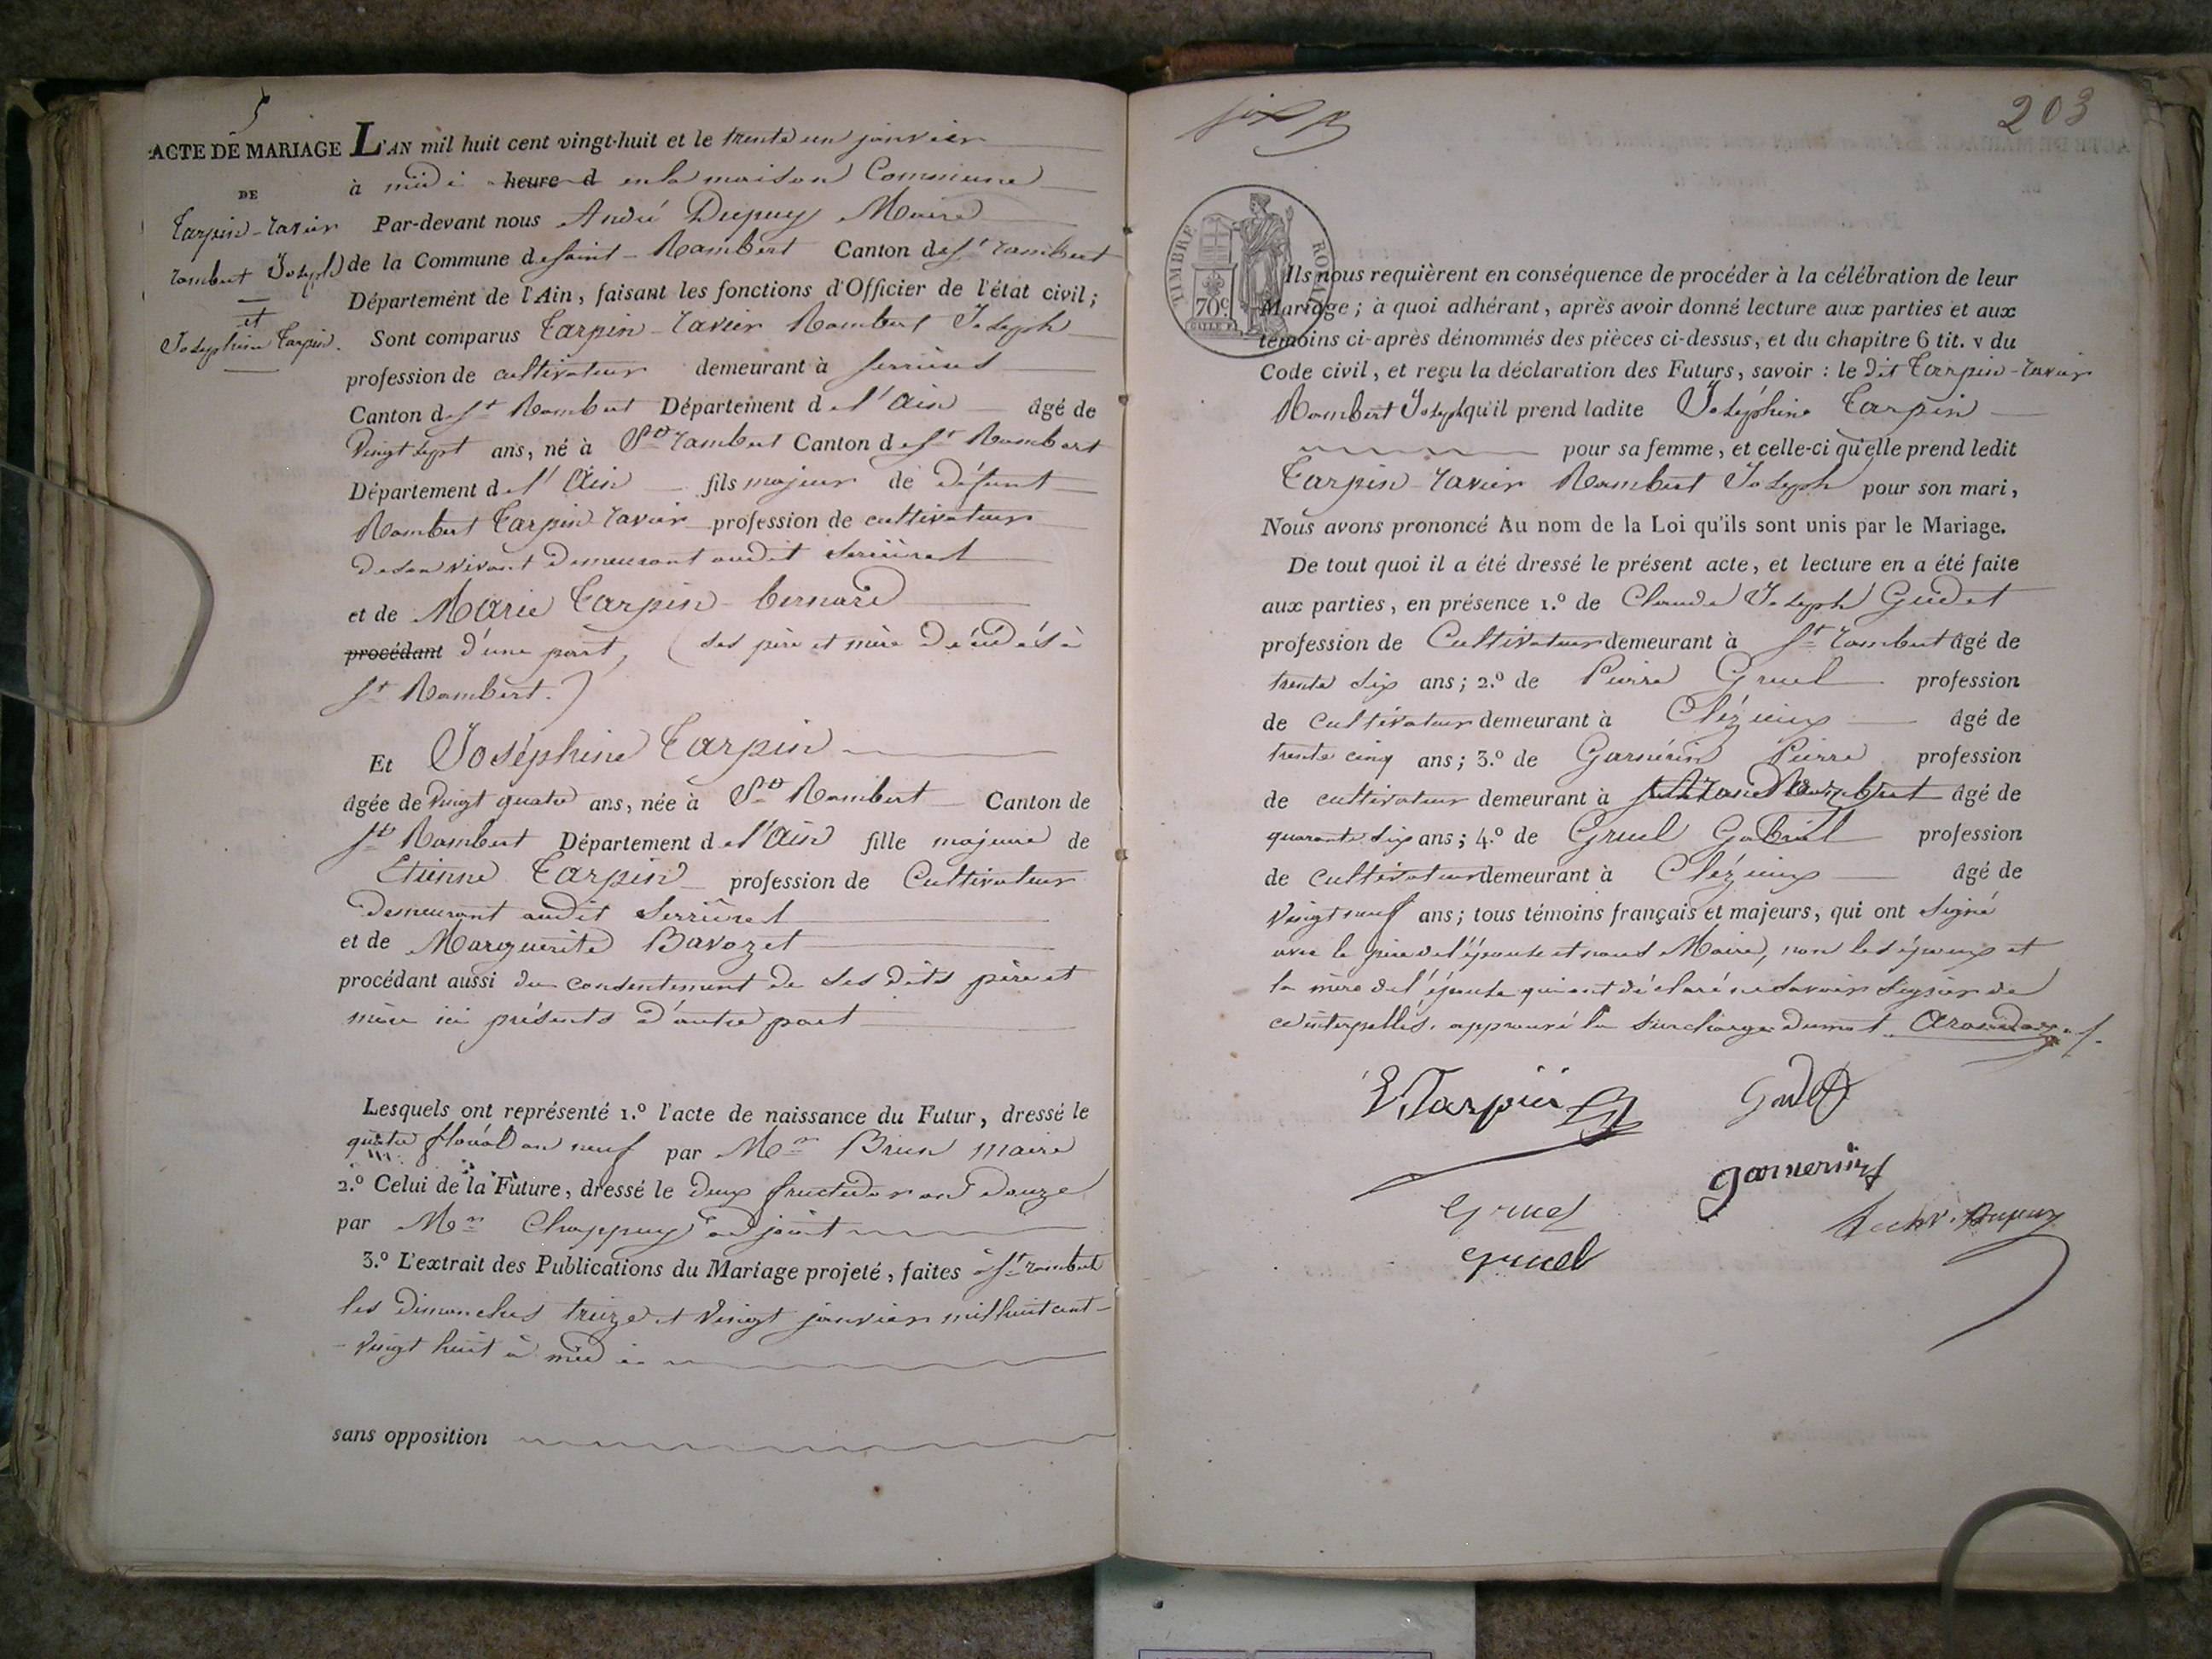 5
ACTE DE MARIAGE
DE
Tarpin-ravier
rambert Joseph
et
Joséphine Tarpin.
L'AN mil huit cent vingt-huit et le trente un janvier
à midi heure d en la maison Commune
Par-devant nous André Dupuy Maire
de la Commune de Saint-Rambert Canton de St rambert
Département de l'Ain, faisant les fonctions d'Officier de l'état civil;
Sont comparus Tarpin-ravier Rambert Joseph
profession de cultivateur demeurant à serrières
Canton de St Rambert Département de l'Ain âgé de
Vingt sept ans, né à St rambert Canton de St Rambert
Département de l'Ain fils majeur de défunt
Rambert Tarpin-ravier profession de cultivateur
de son vivant demeurant audit serrières
et de Marie Tarpin-bernard
procédant d'une part, (ses père et mère décédés à
St Rambert.)
Et Joséphine Tarpin
âgée de vingt quatre ans, née à St Rambert Canton de
St Rambert Département de l'Ain fille majeure de
Etienne Tarpin profession de Cultivateur
demeurant audit serrières
et de Marguerite Bavozet
procédant aussi du consentement de ses dits père et
mère ici présents d'autre part
Lesquels ont représenté 1.º l'acte de naissance du Futur, dressé le
quatre floréal an neuf par Mr Brun maire
2.º Celui de la Future, dressé le deux fructidor an douze
par Mr Chappuy adjoint
3.º L'extrait des Publications du Mariage projeté, faites à St rambert
les dimanches treize et vingt janvier mil huit cent-
-vingt huit à midi
sans opposition
203
TIMBRE ROYAL
70c
Ils nous requièrent en conséquence de procéder à la célébration de leur
Mariage; à quoi adhérant, après avoir donné lecture aux parties et aux
témoins ci-après dénommés des pièces ci-dessus, et du chapitre 6 tit. v du
Code civil, et reçu la déclaration des Futurs, savoir: le dit Tarpin-ravier
Rambert Joseph qu'il prend ladite Joséphine Tarpin
pour sa femme, et celle-ci qu'elle prend ledit
Tarpin-ravier Rambert Joseph pour son mari,
Nous avons prononcé Au nom de la Loi qu'ils sont unis par le Mariage.
De tout quoi il a été dressé le présent acte, et lecture en a été faite
aux parties, en présence 1.º de Claude Joseph Gudet
profession de Cultivateur demeurant à St rambert âgé de
trente six ans; 2.º de Pierre Gruel profession
de cultivateur demeurant à Clézieux âgé de
trente cinq ans; 3.º de Garnérin Pierre profession
de cultivateur demeurant à âgé de
quarante six ans; 4.º de Gruel Gabriel profession
de cultivateur demeurant à Clézieux âgé de
Vingt neuf ans; tous témoins français et majeurs, qui ont signé
avec le père de l'épouse et nous Maire, non les époux et
la mère de l'épouse qui ont déclaré ne savoir signer de
ce interpellés. approuvé la surcharge du mot
E Tarpin
Gudet
garnerin
Gruel
gruel
Dupuy